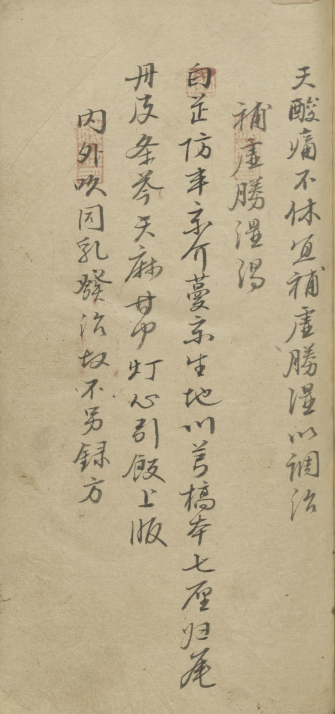 天酸痛不休宜補虛勝湿以調治
補虛勝湿湯
白芷防丰京介蔓京生地川芎槁本七厘归尾
丹皮条芩天麻甘中灯心引飯上服
内外吹同乳發治故不另録方